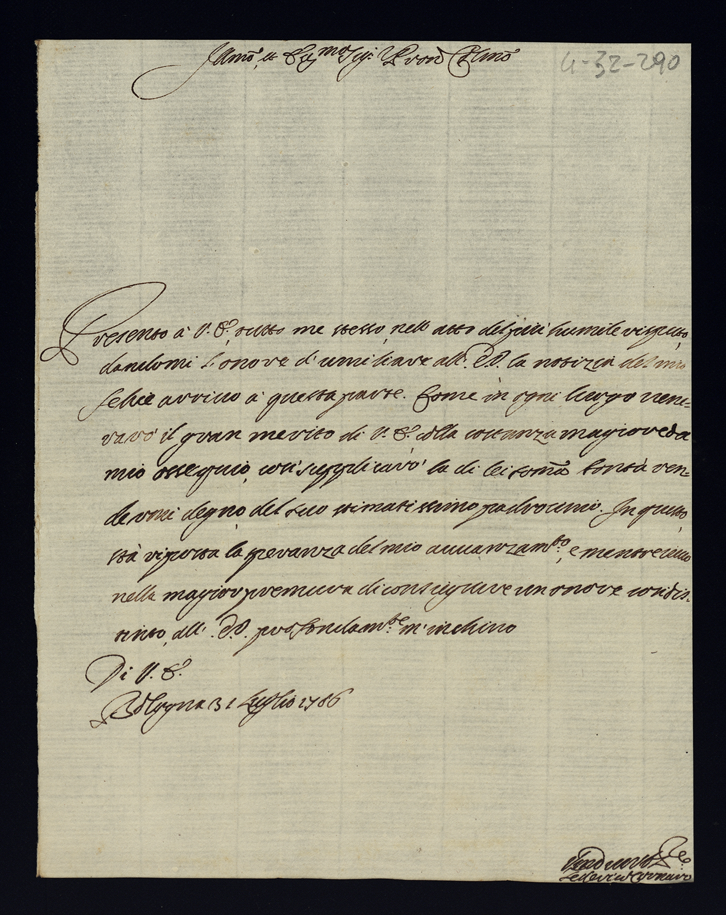 Illmo, et Ecc.mo Sig.r Pron Colmo
4-32-290
Presento à V. E. tutto me stesso, nell'atto del più humile rispetto,
dandomi l'onore d'umiliare all' E.V. la notizia del mio
felice arrivo à questa parte. Come in ogni luogo vene-
rarò il gran merito di V. E. colla costanza magiore da
mio ossequio, così supplicarò la di lei somma bontà ren-
dermi degno del suo stimatissimo padrocinio. In questo
stà riposta la speranza del mio auuanzam.to, e mentre
nella magior premura di conseguire un onore così dis-
tinto, all' E.V. profondam.te m'inchino
Di V. E.
Bologna 31 Luglio 1706